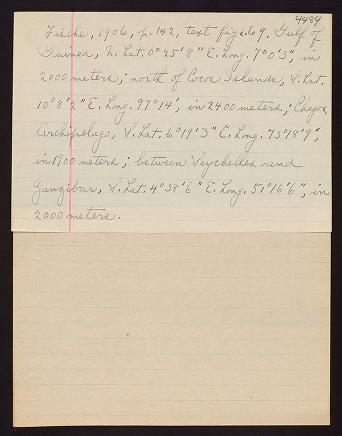 4484
Zinche, 1906, p. 142, text figs. 69, Gulf of
Guinea, N. Lat. 0°25'8" E. Long. 7°0'3", in
2000 meters; north of Cocos Islands, S. Lat.
10°8'2" E. Long. 97°14', in 2400 meters; Chagos
Archipelago, S. Lat. 6°19'3" E. Long. 73°18'9",
in 1900 meters; between Seychelles and
Zanzibar, S. Lat. 4°38'6" E. Long. 51°16'6", in
2000 meters.